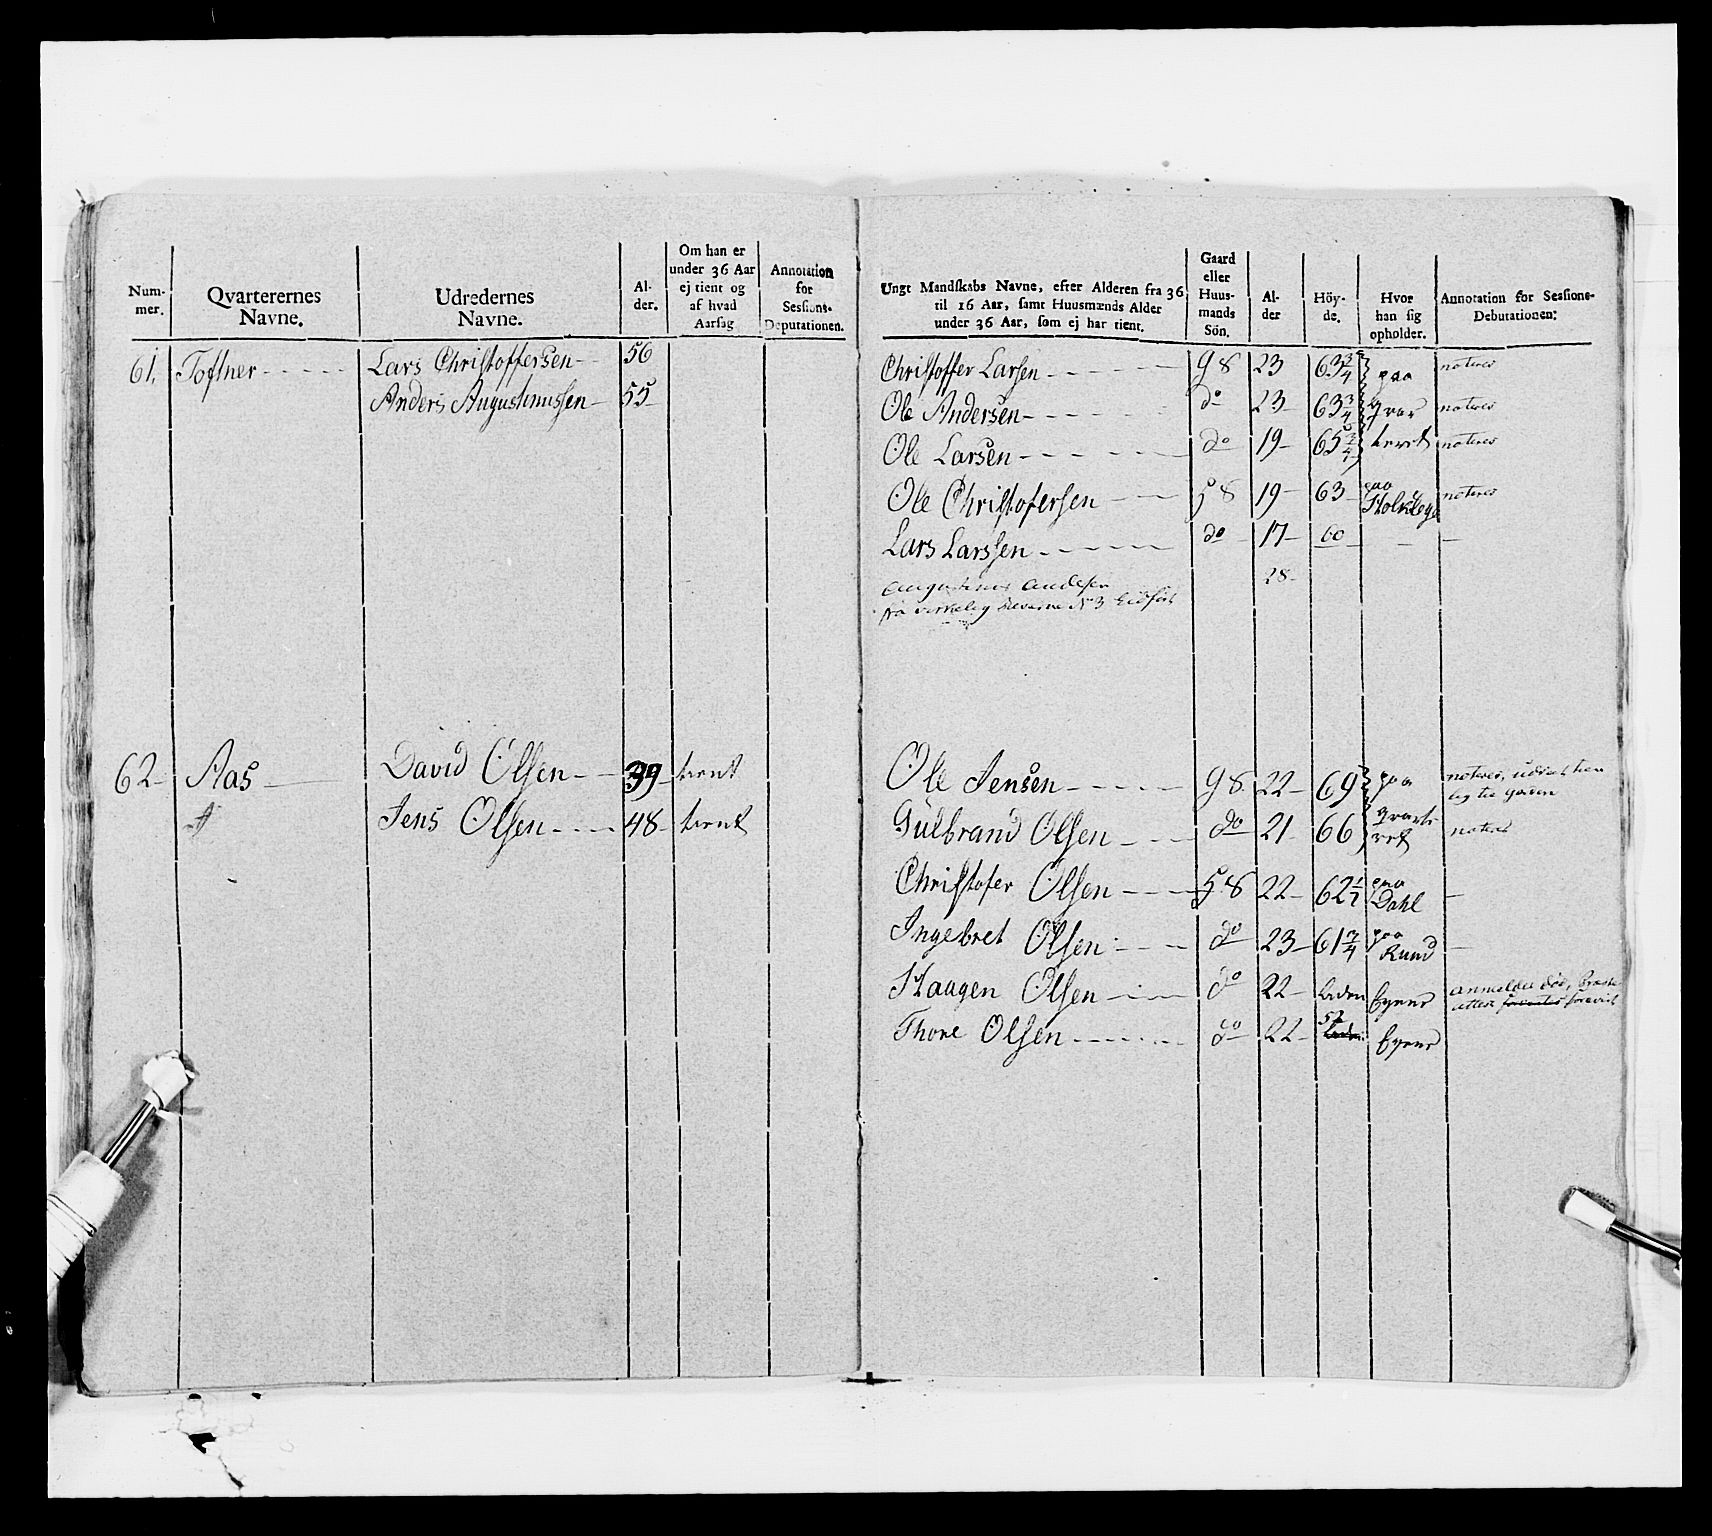 Num-
mer.
Qvarterernes
Navne.
Udredernes
Navne.
Al-
der.
Om han er
under 36 Aar
ej tient og
af hvad
Aarsag
Annotation
for
Sessions-
Deputationen.
61. Toftner Lars Christoffersen 56
Anders Augustinussen 55
62 Aas David Olsen 39 tient
Jens Olsen 48 tient
Ungt Mandskabs Navne, efter Alderen fra 36
til 16 Aar, samt Huusmænds Alder
under 36 Aar, som ej har tient.
Gaard
eller
Huus-
mands
Sön.
Al-
der
Höy-
de.
Hvor
han sig
opholder.
Annotation for Sessions-
Debutationen:
Christoffer Larsen G S 23 63 3/4 paa noteres
Ole Andersen do 23 63 3/4 qvar noteres
Ole Larsen do 19 65 3/4 teret noteres
Ole Christofersen H S 19 63 paa noteres
Lars Larssen do 17 00
Augustinus Andersen 28
fra No 3
Ole Jensen G S 22 69 paa noteres,
Gulbrand Olsen do 21 66 qvarte noteres
ret
Christofer Olsen H S 22 62 1/2 paa
Dahl
Ingebret Olsen do 23 61 3/4 paa
Ruud
Haagen Olsen do 22 liden Eyner anmeldes död,
Thore Olsen do 22 57 liden Eyner